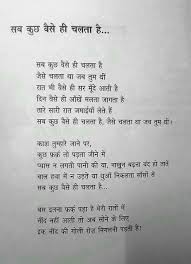 सब कुछ वैसे ही चलता है...
सब कुछ वैसे ही चलता है
जैसे चलता था जब तुम थीं
रात भी वैसे ही सर मूंदे आती है
दिन वैसे ही आँखें मलता जागता है
तारे सारी रात जम्हाईयां लेते हैं
सब कुछ वैसे ही चलता है, जैसे चलता था जब तुम थीं।
काश तुम्हारे जाने पर,
कुछ फ़र्क़ तो पड़ता जीने में
प्यास न लगती पानी की या, नाखून बढ़ना बंद हो जाते
बाल हवा में न उड़ते या धुआँ निकलता साँसों से
सब कुछ वैसे ही चलता है...
बस इतना फर्क पड़ा है मेरी रातों में
नींद नहीं आती तो अब सोने के लिए
इक नींद की गोली रोज़ निगलनी पड़ती है!